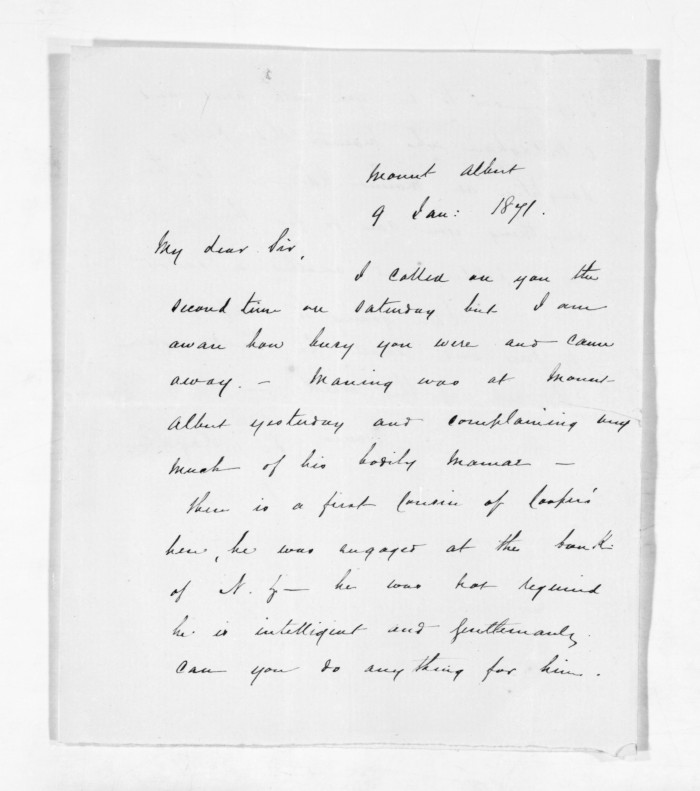 Mount Albert
9 Jan: 1871.
My dear Sir,
I called on you the
second time on Saturday but I am
aware how busy you were and came
away. — Maning was at Mount
Albert yesterday and complaining very
much of his bodily mamae —
there is a first Cousin of Cooper's
here, he was engaged at the bank
of N. Z — he was not required
he is intelligent and gentlemanly,
can you do anything for him.